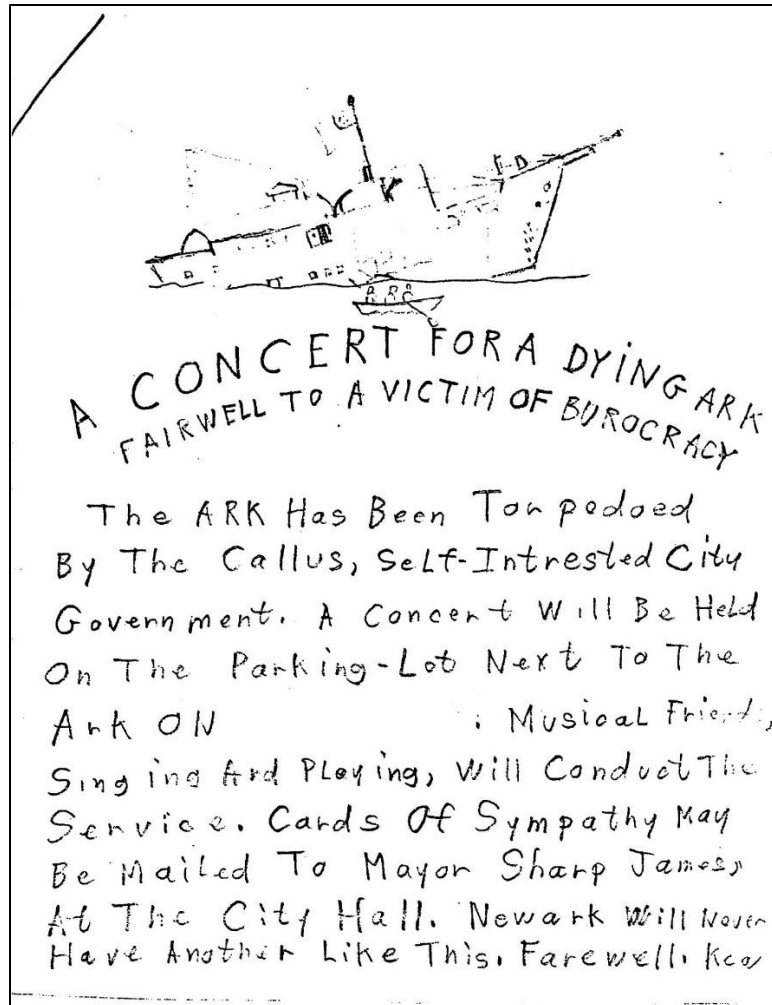 A CONCERT FOR A DYING ARK
FAIRWELL TO A VICTIM OF BUROCRACY
The ARK Has Been Torpedoed
By The Callus, Self-Intrested City
Government. A Concert Will Be Held
On The Parking-Lot Next To The
Ark ON . Musical Friends,
Singing And Playing, Will Conduct The
Service. Cards Of Sympathy May
Be Mailed To Mayor Sharp James,
At The City Hall. Newark Will Never
Have Another Like This. Farewell. Kea